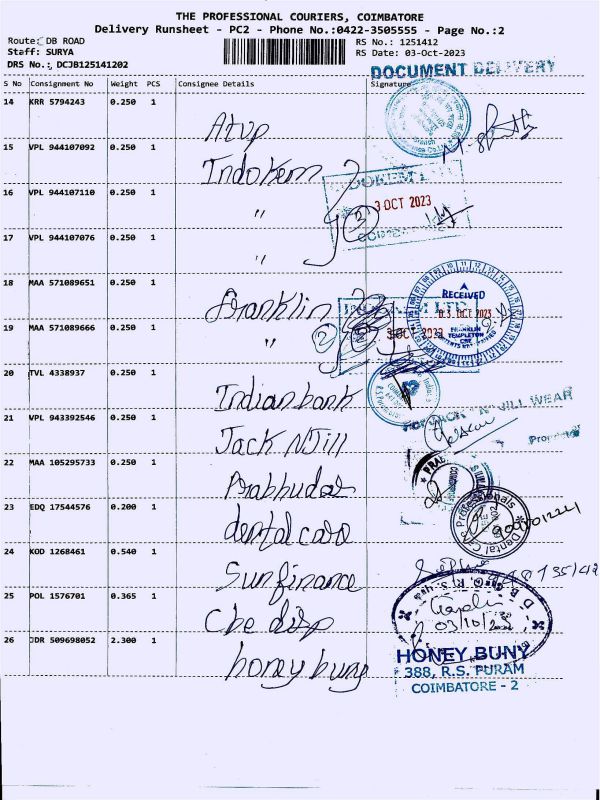 THE PROFESSIONAL COURIERS, COIMBATORE
Delivery Runsheet - PC2 - Phone No.:0422-3505555 - Page No.:2
Route: DB ROAD
Staff: SURYA
DRS No.: DCJB125141202
RS No.: 1251412
RS Date: 03-Oct-2023
DOCUMENT DELIVERY
S No Consignment No Weight PCS Consignee Details Signature
14 KRR 5794243 0.250 1
Atvp
15 VPL 944107092 0.250 1
Indokem
16 VPL 944107110 0.250 1
"
3 OCT 2023
17 VPL 944107076 0.250 1
"
18 MAA 571089651 0.250 1
Franklin
RECEIVED
03 OCT 2023
FRANKLIN
TEMPLETON
CBE
19 MAA 571089666 0.250 1
"
2
3 OCT 2023
20 TVL 4338937 0.250 1
Indian bank
21 VPL 943392546 0.250 1
Jack N Jill
JACK "N" JILL WEAR
22 MAA 105295733 0.250 1
Prabhudas
23 EDQ 17544576 0.200 1
dental care
Dental Care Professionals
24 KOD 1268461 0.540 1
Sun finance
25 POL 1576701 0.365 1
Cbe disp
03/10/23
26 JDR 509698052 2.300 1
honey buny
HONEY BUNY
388, R.S. PURAM
COIMBATORE - 2